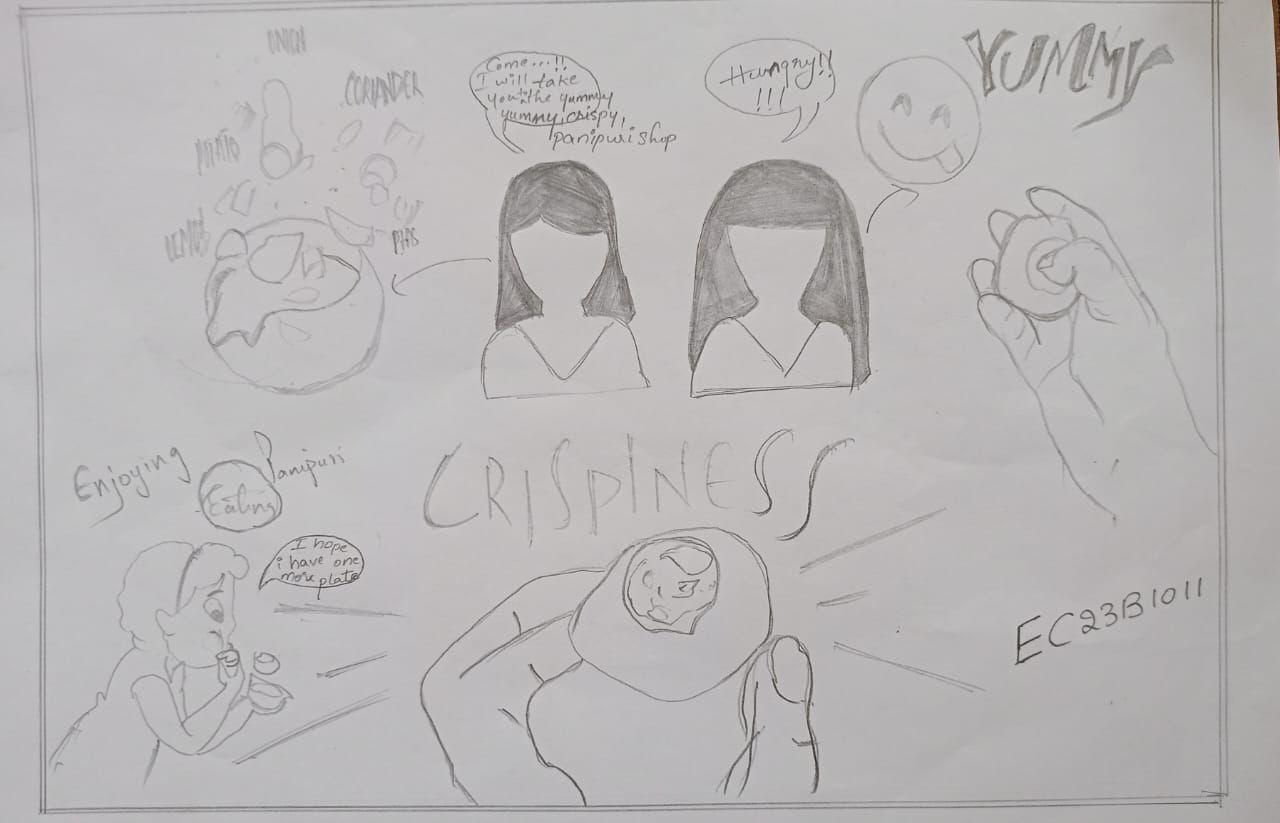 ONION
CORIANDER
POTATO
LEMON
PEAS
Come...!!
I will take
you to the yummy
yummy, crispy,
panipuri shop
Hungry!!
!!!
YUMMY
Enjoying
Eating
Panipuri
I hope
i have one
more plate
CRISPINESS
EC23B1011